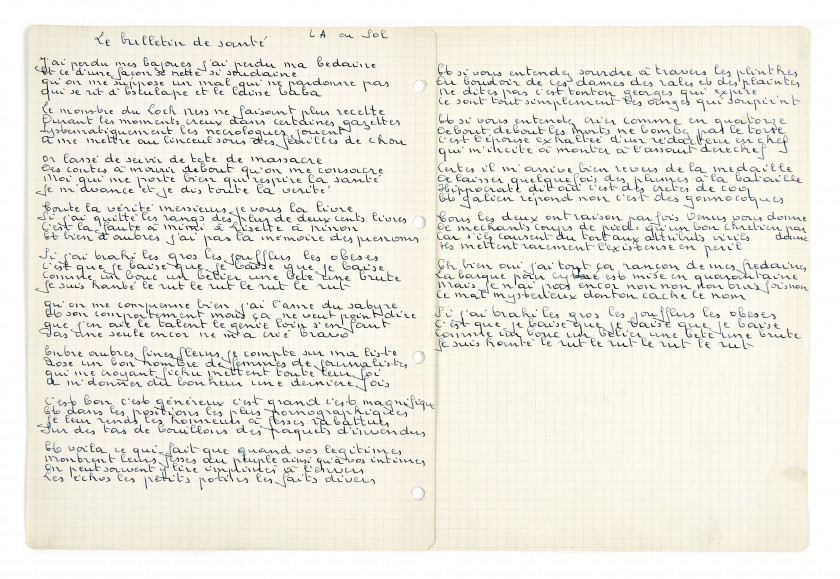 Le bulletin de santé
LA ou Sol
J'ai perdu mes bajoues j'ai perdu ma bedaine
Et ce d'une façon si nette si soudaine
qu'on me suppose un mal qui ne pardonne pas
qui se rit d'Esculape et le laisse baba
Le monstre du Loch Ness ne faisant plus recette
Durant les moments creux dans certaines gazettes
Systématiquement les necrologues jouent
à me mettre au linceul sous des feuilles de chou
Or lassé de servir de tete de massacre
Des contes à mourir debout qu'on me consacre
Moi qui me porte bien qui respire la santé
Je m'avance et je dis toute la vérité
Toute la vérité messieurs je vous la livre
Si j'ai quitté les rangs des plus de deux cents livres
c'est la faute à mimi à lisette à ninon
Et bien d'autres j'ai pas la mémoire des prenoms
Si j'ai trahi les gros les joufflus les obeses
c'est que je baise que je baise que je baise
comme un bouc un belier une bete une brute
Je suis hanté le rut le rut le rut le rut
qu'on me comprenne bien j'ai l'ame du satyre
Et son comportement mais ça ne veut point dire
que j'en aie le talent le génie loin s'en faut
Pas une seule encor ne m'a crié bravo
Entre autres fines fleurs je compte sur ma liste
Rose un bon nombre de femmes de journalistes
qui me croyant fichu mettent toute leur foi
à m'donner du bonheur une dernière fois
c'est bon c'est généreux c'est grand c'est magnifique
Et dans les positions les plus pornographiques
Je leur rends les honneurs à fesses rabattues
Sur des tas de bouillons des paquets d'invendus
Et voila ce qui fait que quand vos legitimes
montrent leurs fesses au peuple ainsi qu'à vos intimes
On peut souvent y lire imprimés à l'envers
Les échos les petits potins les faits divers
Et si vous entendez sourdre à travers les plinthes
Du boudoir de ces dames des rales et des plaintes
ne dites pas c'est tonton georges qui expire
ce sont tout simplement les anges qui soupirent
Et si vous entendez crier comme en quatorze
Debout debout les morts ne bombez pas le torse
c'est l'épouse exhaltée d'un rédacteur en chef
qui m'incite à monter à l'assaut derechef
Certes il m'arrive bien revers de la medaille
De laisser quelquefois des plumes à la bataille
Hippocrate dit oui c'est des cretes de coq
Et galien repond non c'est des gonnocoques
Tous les deux ont raison parfois Venus vous donne
De mechants coups de pied qu'un bon chretien pardonne
Car s'ils causent du tort aux attributs virils
Ils mettent rarement l'existense en peril
Eh bien oui j'ai tout ça rançon de mes fredaines
La barque pour cythere est mise en quarantaine
Mais je n'ai pas encor non non non trois fois non
ce mal mysterieux dont on cache le nom
Si j'ai trahi les gros les joufflus les obeses
c'est que je baise que je baise que je baise
comme un bouc un belier une bete une brute
Je suis hanté le rut le rut le rut le rut